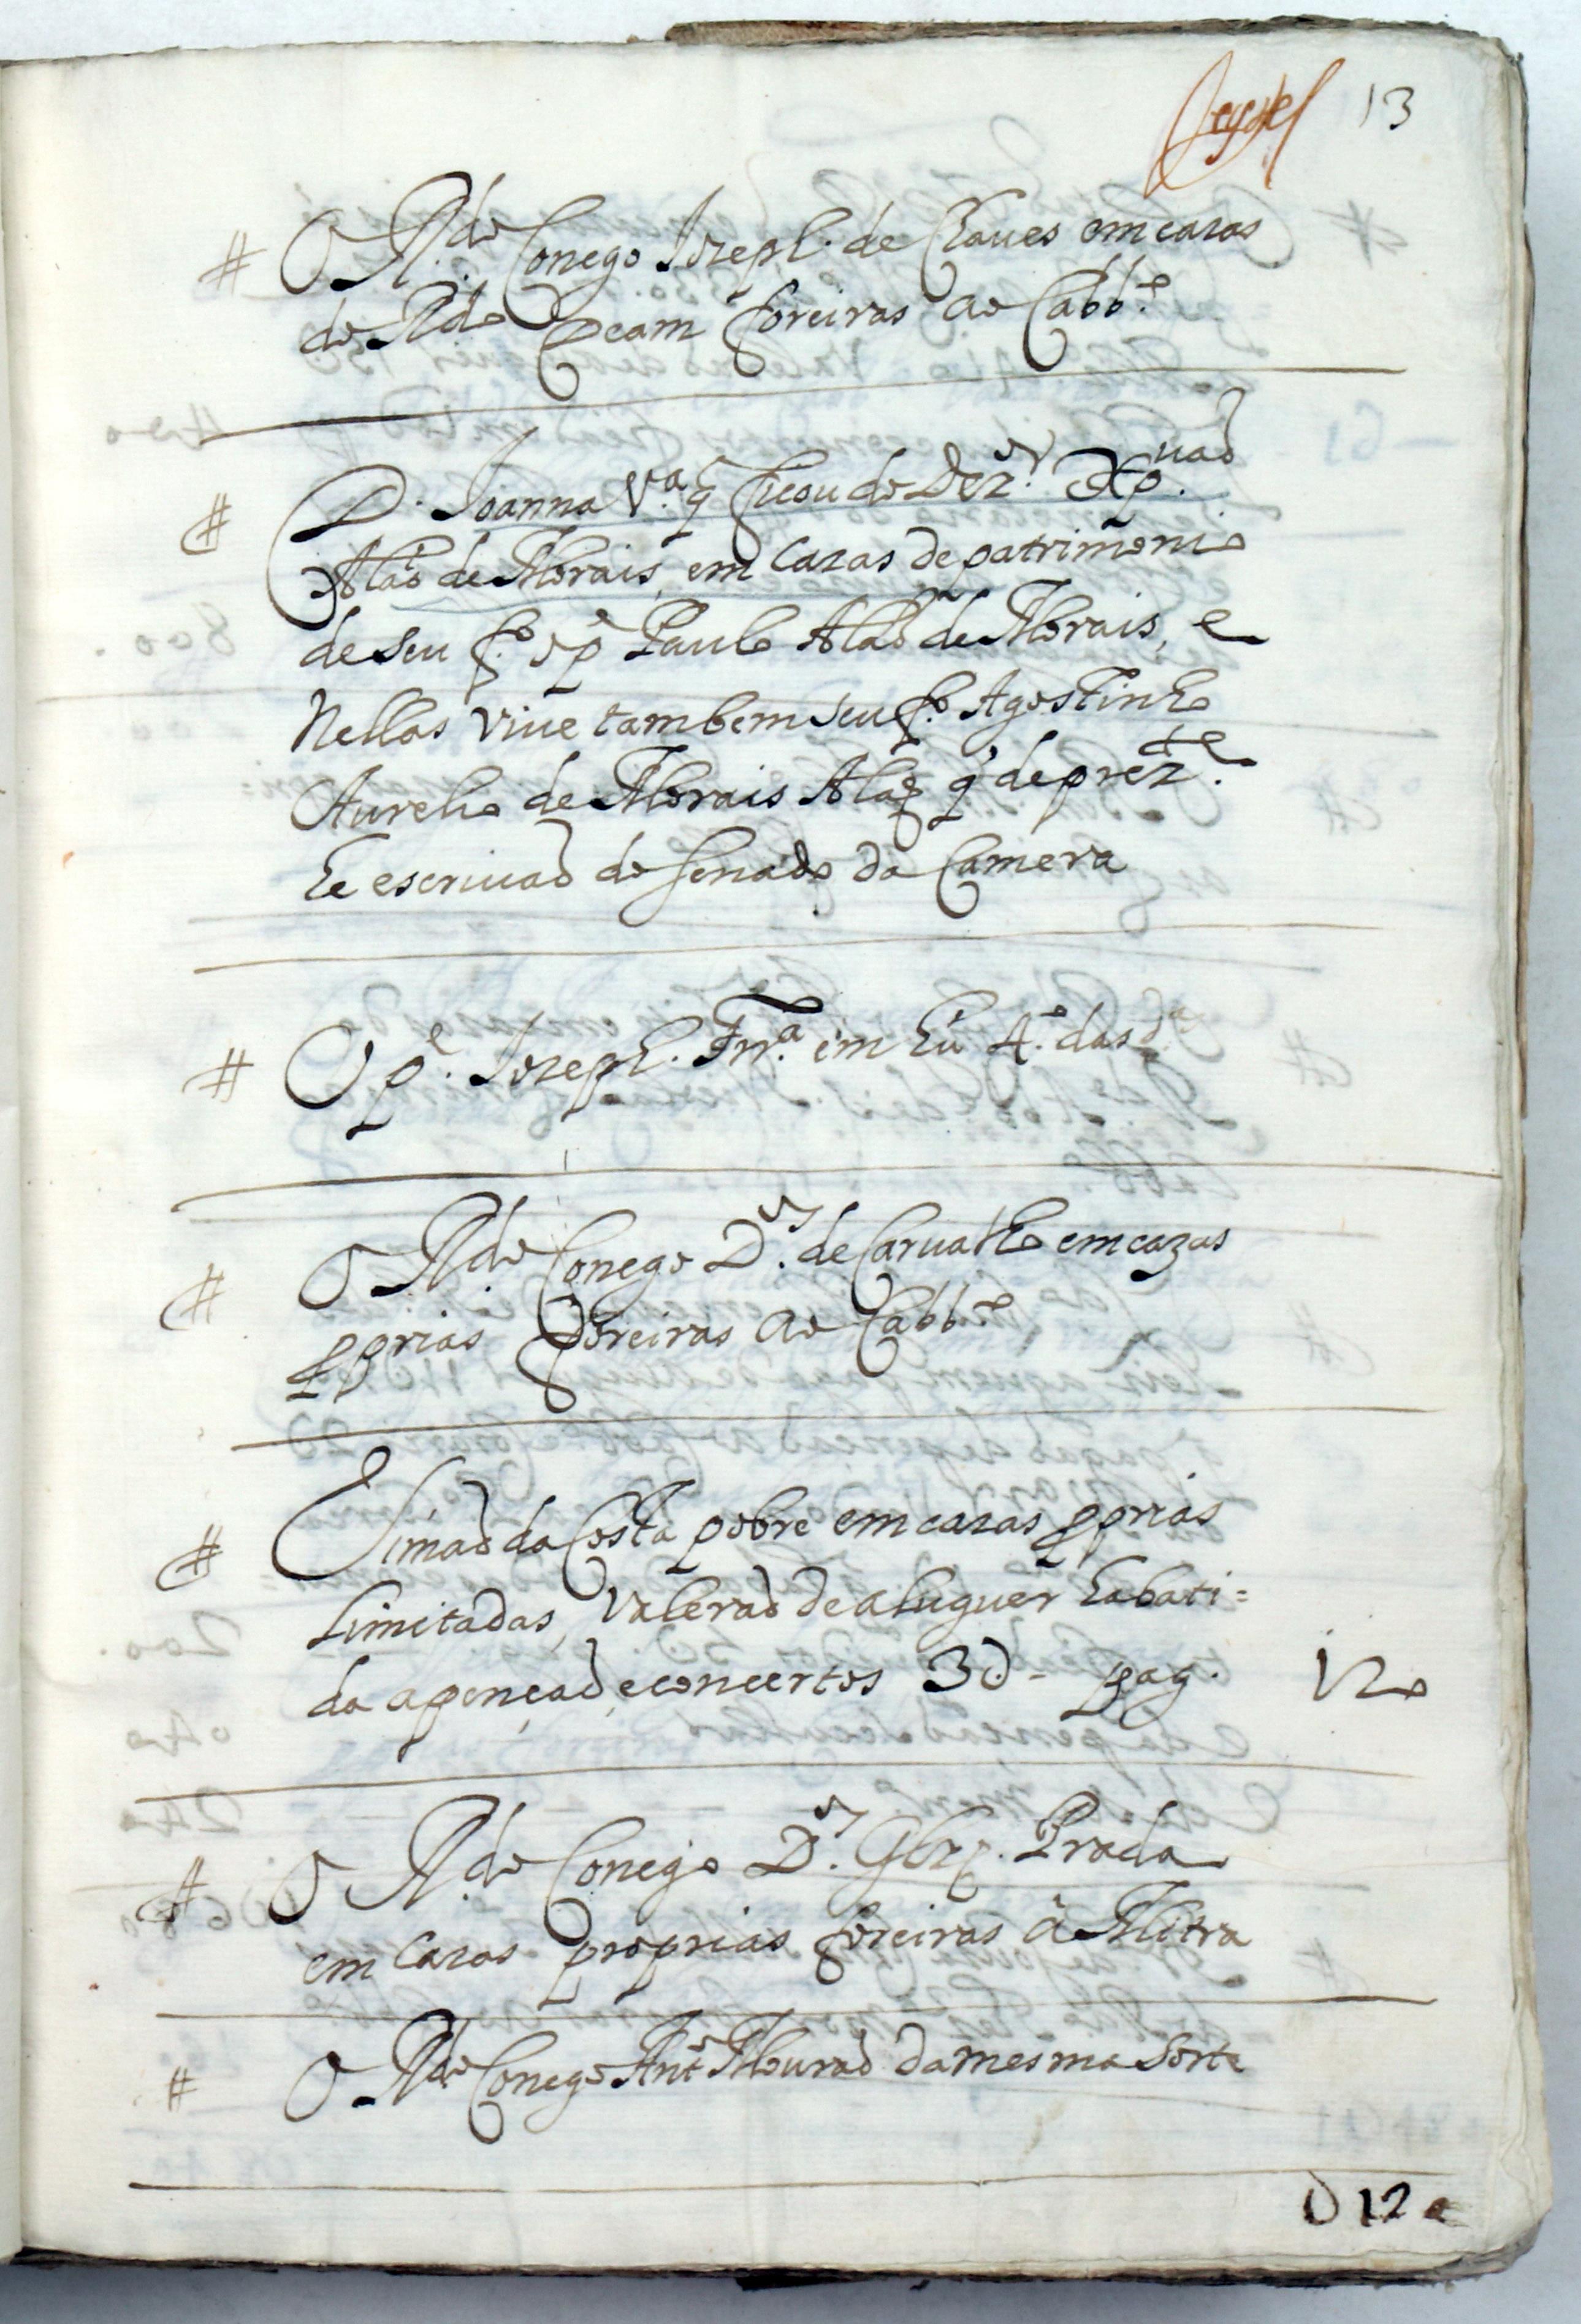 13
# O R.do Conego Jozeph. de Chaues em cazas
do R.do Deam foreiras ao Cabb.o
# D. Joanna V.a q̃ ficou do Dez.or Xp.uaõ
Alaõ de Morais, em Cazas de patrimonio
de seu f.o o p.e Paulo Alaõ de Morais, e
Nellas viue tambem seu f.o Agostinho
Aurelio de Morais Alaõ q̃ de prez.te
he escriuaõ do senado da Camera
# O p.e Jozeph. Frr.a em hũ A.o das d.as
# O R.do Conego D.os de Carualho em cazas
pprias foreiras ao Cabb.o
# Simaõ da Costa pobre em cazas pprias
Limitadas, Valeraõ de aluguer habati=
da apençaõ, e concertos 3d - pag. 120
# O R.do Conego D.os Glz. Prada
em Cazas proprias foreiras â Mitra
# O R.do Conego Ant.o Mouraõ da mesma Sorte
D 120